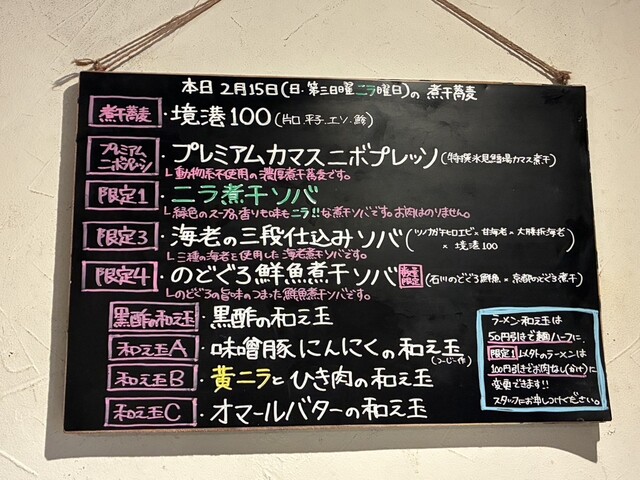 本日 2月15日(日・第三日曜ニラ曜日)の 煮干蕎麦
煮干蕎麦 ・境港100(片口.平子.エソ.鯵)
プレミアムニボプレッソ ・プレミアムカマスニボプレッソ(特撰氷見鰮場カマス煮干)
└動物系不使用の濃厚煮干蕎麦です。
限定1 ・ニラ煮干ソバ
└緑色のスープも香りも味もニラ!!な煮干ソバです。お肉はのりません。
限定3 ・海老の三段仕込みソバ(ツノナガチヒロエビ×甘海老×大勝浜海老×境港100)
└三種の海老を使用した海老煮干ソバです。
限定4 ・のどぐろ鮮魚煮干ソバ(石川のどぐろ鮮魚×京都のどぐろ煮干)
└のどぐろの旨味のつまった鮮魚煮干ソバです。
黒酢の和え玉 ・黒酢の和え玉
和え玉A ・味噌豚にんにくの和え玉
和え玉B ・黄ニラとひき肉の和え玉
和え玉C ・オマールバターの和え玉
ラーメン和え玉は
50円引きで麺ハーフに、
限定1以外のラーメンは
100円引きでお肉なし(かけ)に
変更できます!!
スタッフにお申しつけください。